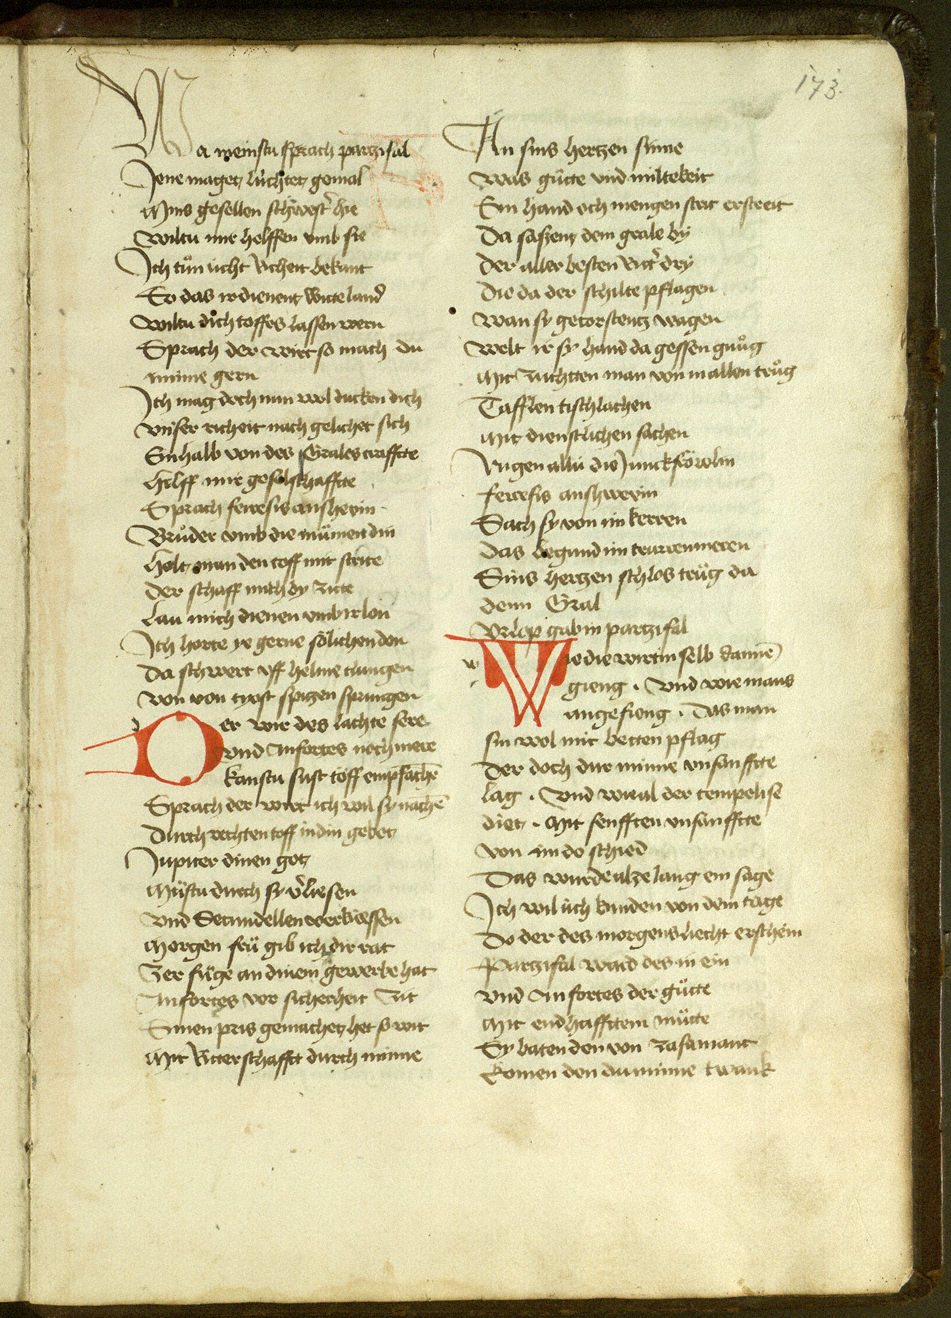 173.
Wa meinstu sprach partzifal
Jene magetz lùchtetz gemal
Mins gesellen schwest' hie
Wiltu mir helffen vmb sie
Ich tůn ùcht richeit bekant
So das ir dienent wite land
Wiltu dich toffes lassen wern
Sprach der wirt so mach du
minne gern
Ich mag doch nun wol ducken dich
Vnser richeit nach gelichet sich
Sinhalb von des Grales craffte
Hilff mir geselschaffte
Sprach ferefis anshevin
Brůder vmb die můmen din
Holt man den toff mit strite
Der schaff mich by zite
Lan mich dienen vmb ir lon
Ich horte ye gerne sölichen don
Da schwert vff helme clungen
Von von tyost spitzen sprungen
Der wir des lachte sere
Vnd Anfortes noch mere
kanstu sust toff empfachē
Sprach der wirt ich wil sy nachē
Durch rechten toff in din gebet
Jupiter dinen gotz
Můstu durch sy v'liesen
Vnd Secundellen verkiessen
Morgen frů gib ich dir rat
Der fůge an dinem gewerbe hat
Anfortes vor sicherheit zit
Sinen pris gemachetz het so wit
Mit Ritterschafft durch minne
An sins hertzen sinne
Was gůtte vnd miltekeit
Sin hand och mengen strit erstreit
Da sassentz dem grale by
Der aller besten rit' dry
Die da der schilte pflagen
Wan sy getorstentz wagen
Welt ir sy hand da gessen gnůg
Mit zùchtten man von in allen trůg
Tafflen tischlachen
Mit dienstlichen sachen
Nigen allù die Junckfröwlin
ferefis anshevin
Sach sy von im kerren
Das begund im truren meren
Sins hertzen schlos trůg da
denn Gral
Vrlop gab in partzifal
Wie die wirtin selb dannē
gieng . Vnd wie mans
angefieng . Das man
sin wol mit betten pflag
Der doch dur minne vnsanffte
lag . Vnd wie al der tempelise
diet . Mit senfften vnsanffte
von im do schied
Das wurde alze lang ein sage
Ich wil ùch kunden von dem tage
Do der des morgens liecht erschein
Partzifal ward des in ein
Vnd Anfortes der gůtte
Mit endhafftem můtte
Sy baten den von zasamant
komen den du minne twank